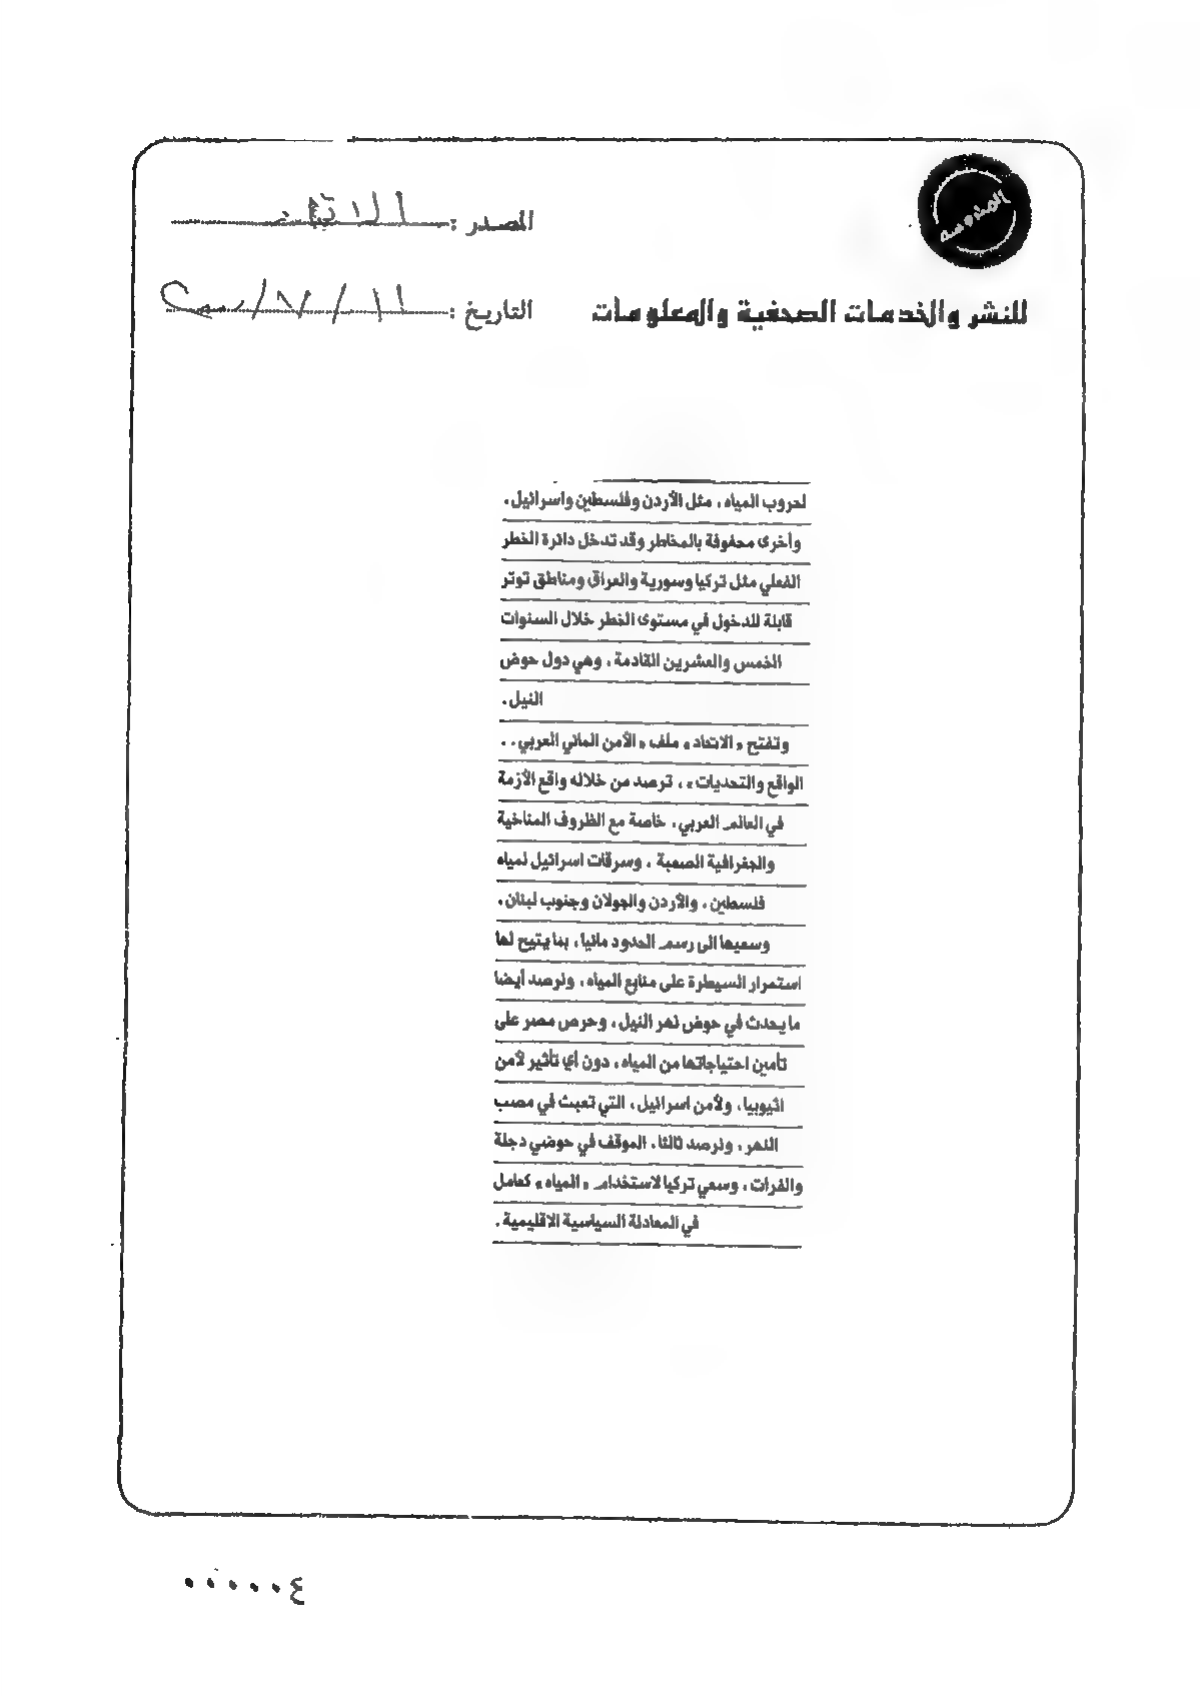 المصدر :
التاريخ : ١١ / ٧ /
للنشر والخدمات الصحفية والمعلومات
لحروب المياه ، مثل الأردن وفلسطين واسرائيل .
وأخرى محفوفة بالمخاطر وقد تدخل دائرة الخطر
الفعلي مثل تركيا وسورية والعراق ومناطق توتر
قابلة للدخول في مستوى الخطر خلال السنوات
الخمس والعشرين القادمة ، وهي دول حوض
النيل .
وتفتح « الاتحاد » ملف « الأمن المائي العربي . .
الواقع والتحديات » ، ترصد من خلاله واقع الأزمة
في العالم العربي ، خاصة مع الظروف المناخية
والجغرافية الصعبة ، وسرقات اسرائيل لمياه
فلسطين ، والأردن والجولان وجنوب لبنان ،
وسعيها الى رسم الحدود مائيا ، بما يتيح لها
استمرار السيطرة على منابع المياه ، ونرصد أيضا
ما يحدث في حوض نهر النيل ، وحرص مصر على
تأمين احتياجاتها من المياه ، دون أي تأثير لأمن
اثيوبيا ، ولأمن اسرائيل ، التي تعبث في مصب
النهر ، ونرصد ثالثا ، الموقف في حوضي دجلة
والفرات ، وسعي تركيا لاستخدام « المياه » كعامل
في المعادلة السياسية الاقليمية .
٠٠٠٠٠٤